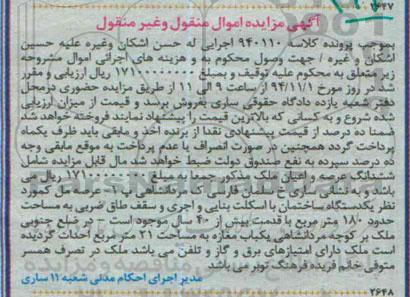 ۲۶۴۷
آگهی مزایده اموال منقول وغیر منقول
بموجب پرونده کلاسه ۹۴۰۱۱۰ اجرایی له حسن اشکان وغیره علیه حسین
اشکان و غیره / جهت وصول محکوم به و هزینه های اجرائی اموال مشروحه
زیر متعلق به محکوم علیه توقیف و بمبلغ ۱۷۱۰۰۰۰۰۰۰ ریال ارزیابی و مقرر
شد روز ۹۴/۱۱/۱ از ساعت ۹ الی ۱۱ از طریق مزایده حضوری درمحل
دفتر شعبه یازده دادگاه حقوقی ساری بفروش برسد و قیمت از میزان ارزیابی
شده شروع و به کسانی که بالاترین قیمت را پیشنهاد نمایند فروخته خواهد شد
ضمنا ده درصد از قیمت پیشنهادی نقدا از برنده اخذ و مابقی باید ظرف یکماه
پرداخت گردد همچنین در صورت انصراف یا عدم پرداخت به موقع مابقی وجه
ده درصد سپرده به نفع صندوق دولت ضبط خواهد شد مال قابل مزایده شامل
ششدانگ عرصه و اعیان ملک مذکور جمعا به مبلغ ۱۷۱۰۰۰۰۰۰۰ ریال می
باشد و به نشانی ساری خیابان قارن کوچه مردگاهشاهی - عرصه ملک مورد
نظر یکدستگاه ساختمان با اسکلت بنایی و آجری و سقف طاق ضربی به مساحت
حدود ۱۸۰ متر مربع با قدمت بیش از ۴۰ سال موجود است – در ضلع جنوبی
ملک بر کوچه مردگاهشاهی یکباب مغازه به مساحت ۲۱ متر مربع احداث گردیده
است ملک دارای امتیازهای برق و گاز و تلفن می باشد ملک در تصرف همسر
متوفی خانم فریده فرهنگ نویر می باشد
مدیر اجرای احکام مدنی شعبه ۱۱ ساری
۲۶۴۸